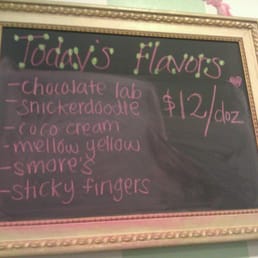 Today's Flavors
-chocolate lab
-snickerdoodle
-coco cream
-mellow yellow
-smore's
-sticky fingers
$12/doz